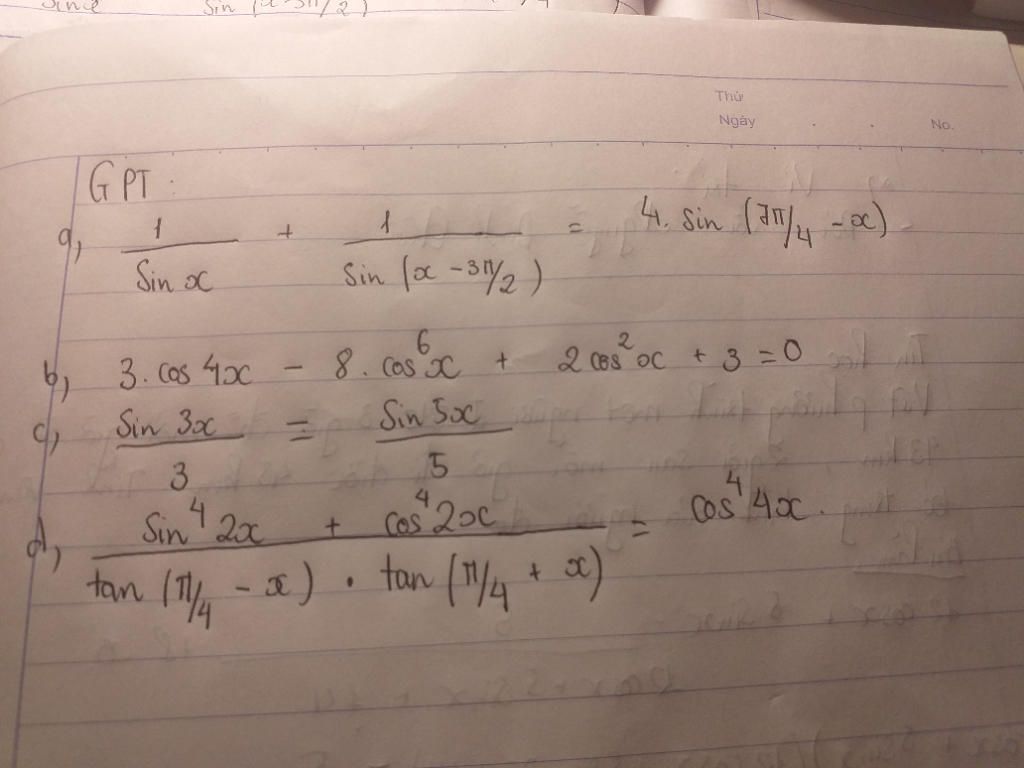 sin x sin (x - 3π/2)
Thứ
Ngày . . No.
GPT:
a, 1/sin x + 1/sin (x - 3π/2) = 4. sin (7π/4 - x)
b, 3. cos 4x - 8. cos⁶x + 2cos²x + 3 = 0
c, sin 3x/3 = sin 5x/5
d, (sin⁴2x + cos⁴2x)/(tan (π/4 - x) . tan (π/4 + x)) = cos⁴4x.